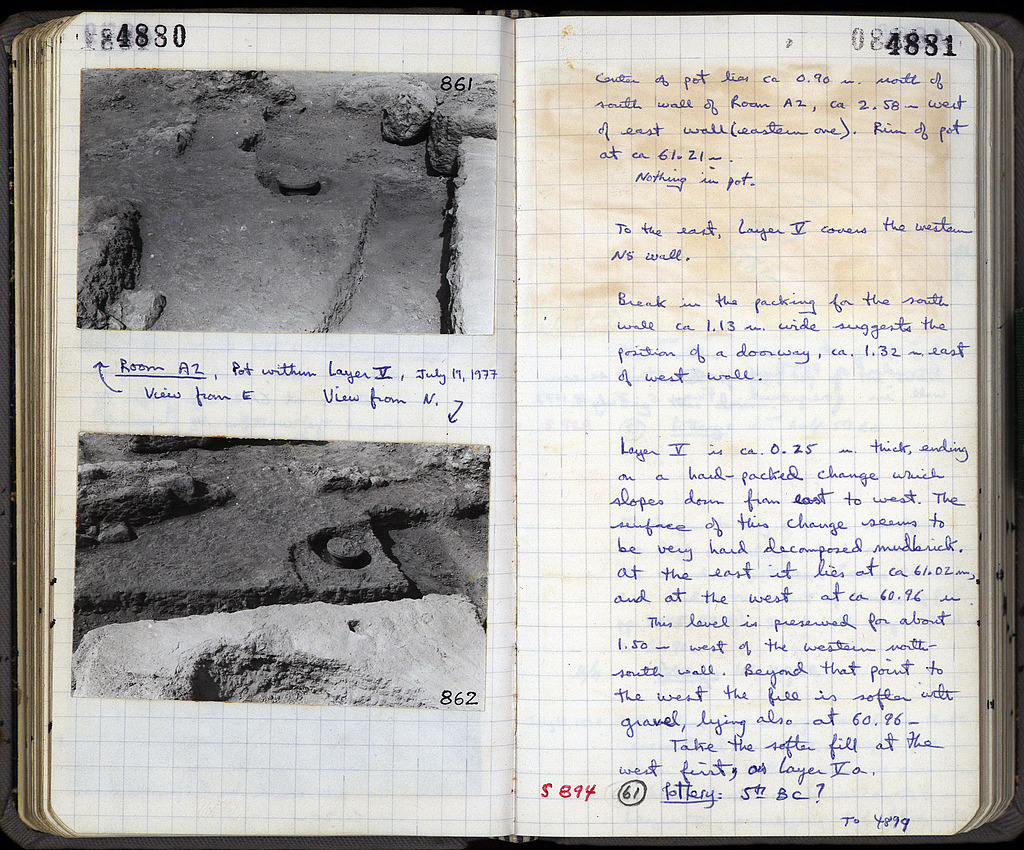 4880
861
Room A2, Pot within Layer V, July 19, 1977
View from E    View from N.
862
084881
Center of pot lies ca 0.90 m. north of
south wall of Room A2, ca 2.58 m west
of east wall (eastern one). Rim of pot
at ca 61.21 m.
Nothing in pot.
To the east, Layer V covers the western
NS wall.
Break in the packing for the south
wall ca 1.13 m. wide suggests the
position of a doorway, ca. 1.32 m. east
of west wall.
Layer V is ca. 0.25 m. thick, ending
on a hard-packed change which
slopes down from east to west. The
surface of this change seems to
be very hard decomposed mudbrick.
At the east it lies at ca 61.02 m,
and at the west at ca 60.96 m.
This level is preserved for about
1.50 m west of the western north-
south wall. Beyond that point to
the west the fill is softer with
gravel, lying also at 60.96 m
Take the softer fill at the
west first, as Layer Va.
5 B94 61 Pottery: 5th BC?
To 4899